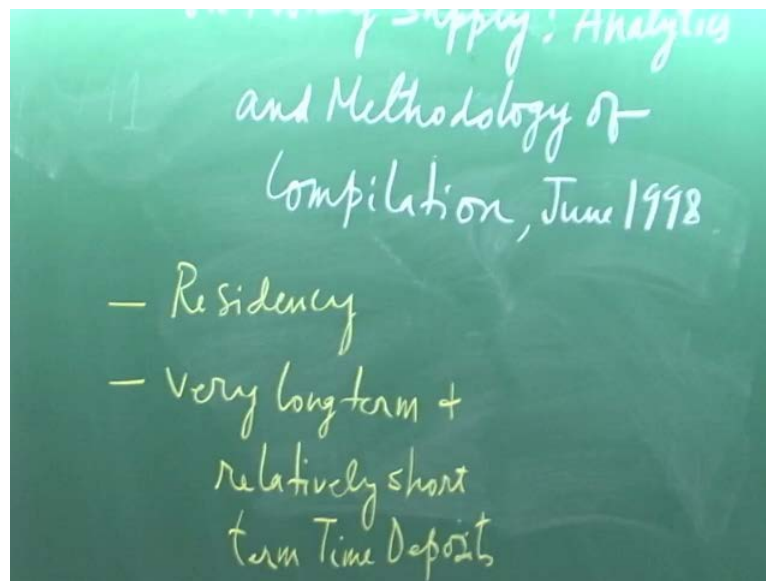 Supply: Analytics
and Methodology of
Compilation, June 1998
— Residency
— Very long term +
relatively short
term Time Deposits